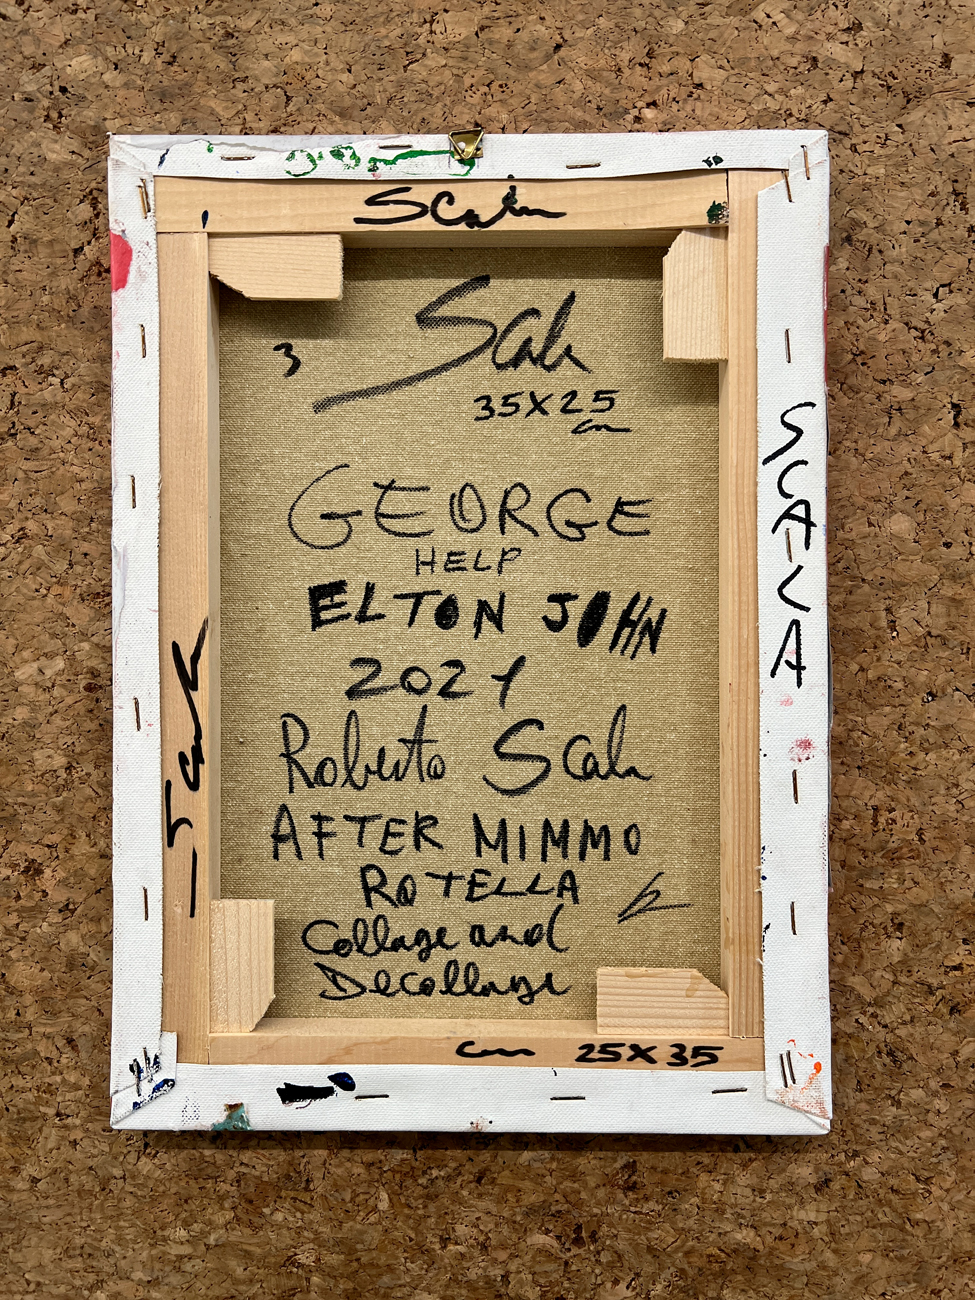 Scala
3
Scala
35X25
cm
GEORGE
HELP
ELTON JOHN
2021
Roberto Scala
AFTER MIMMO
ROTELLA
Collage and
Decollage
cm 25X35
Scala
SCALA